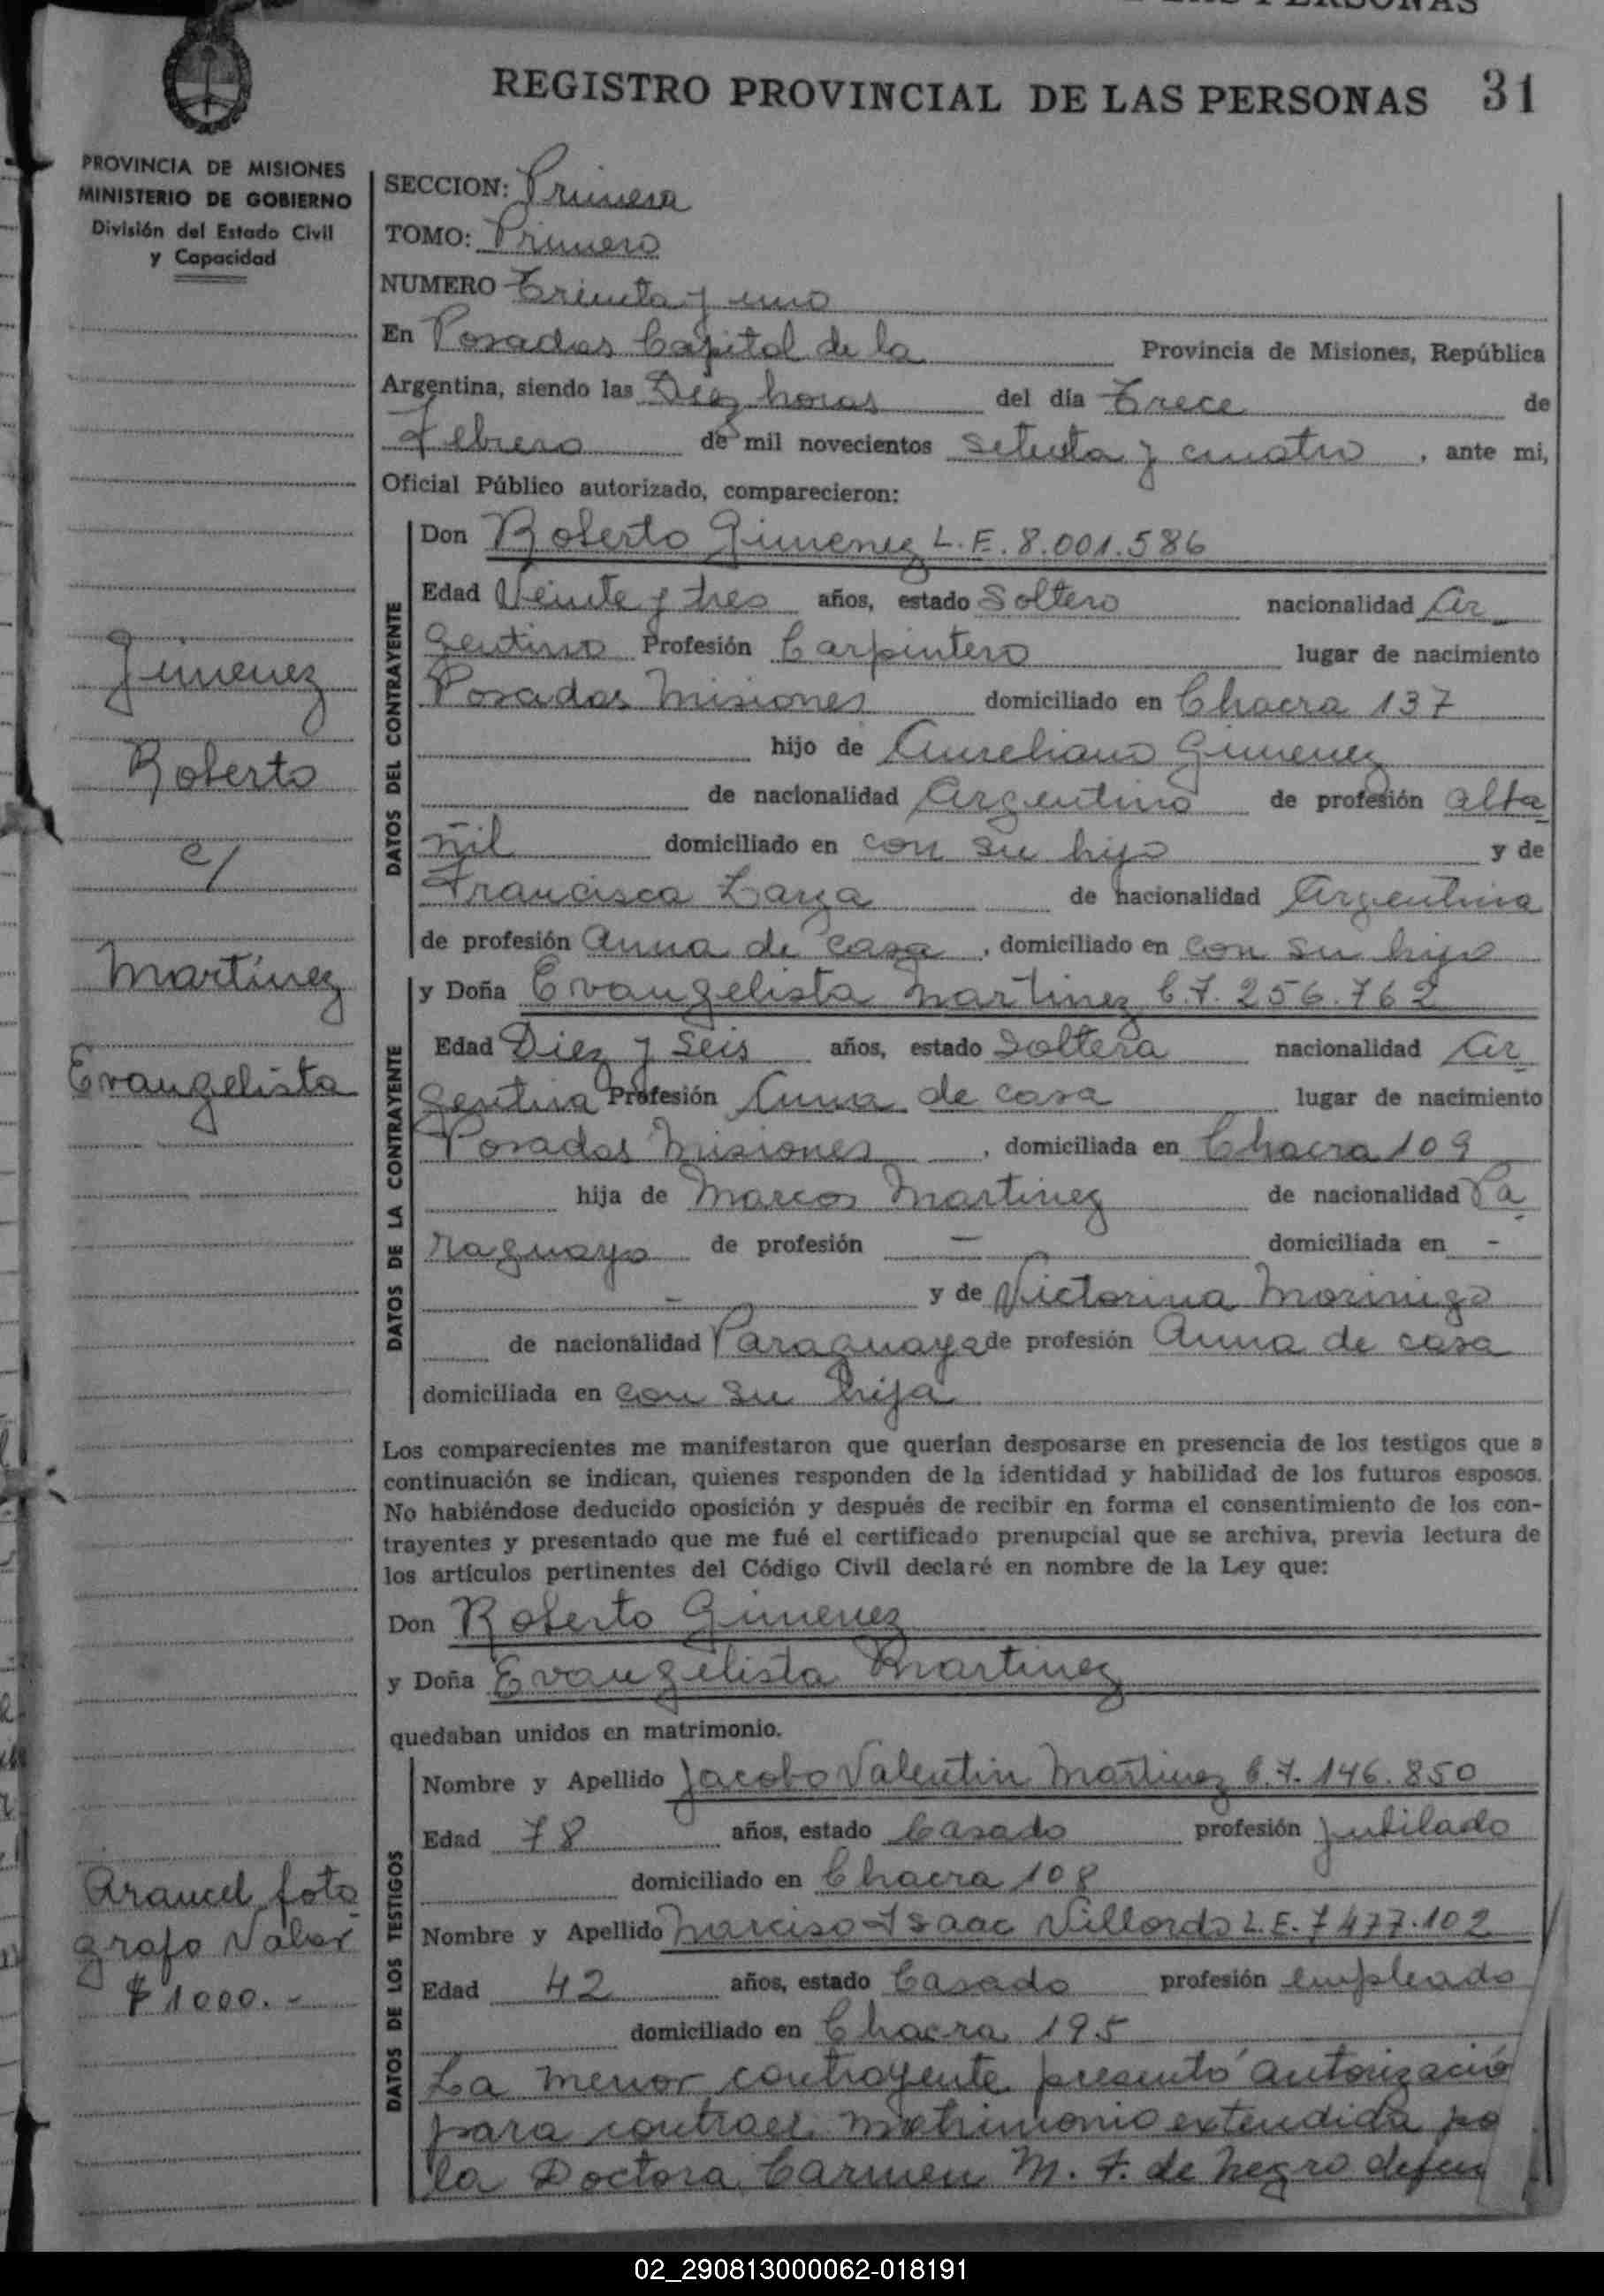 REGISTRO PROVINCIAL DE LAS PERSONAS 31
PROVINCIA DE MISIONES
MINISTERIO DE GOBIERNO
División del Estado Civil
y Capacidad
Gimenez
Roberto
c/
Martínez
Evangelista
Arancel foto
grafo Valor
$ 1000.-
SECCION: Primera
TOMO: Primero
NUMERO Treinta y uno
En Posadas Capital de la Provincia de Misiones, República
Argentina, siendo las Diez horas del día Trece de
Febrero de mil novecientos setenta y cuatro, ante mi,
Oficial Público autorizado, comparecieron:
DATOS DEL CONTRAYENTE
Don Roberto Gimenez L.E. 8.001.586
Edad Veinte y tres años, estado Soltero nacionalidad Ar
gentino Profesión Carpintero lugar de nacimiento
Posadas Misiones domiciliado en Chacra 137
hijo de Aureliano Gimenez
de nacionalidad Argentino de profesión alba
ñil domiciliado en con su hijo y de
Francisca Larza de nacionalidad Argentina
de profesión Anna de casa, domiciliado en con su hijo
DATOS DE LA CONTRAYENTE
y Doña Evangelista Martinez C.I. 256.762
Edad Diez y Seis años, estado Soltera nacionalidad Ar
gentina Profesión Anna de casa lugar de nacimiento
Posadas Misiones, domiciliada en Chacra 109
hija de Marcos Martinez de nacionalidad Pa
raguayo de profesión - domiciliada en -
- y de Victorina Morinigo
de nacionalidad Paraguaya de profesión Anna de casa
domiciliada en con su hija
Los comparecientes me manifestaron que querían desposarse en presencia de los testigos que a
continuación se indican, quienes responden de la identidad y habilidad de los futuros esposos.
No habiéndose deducido oposición y después de recibir en forma el consentimiento de los con-
trayentes y presentado que me fué el certificado prenupcial que se archiva, previa lectura de
los artículos pertinentes del Código Civil declaré en nombre de la Ley que:
Don Roberto Gimenez
y Doña Evangelista Martinez
quedaban unidos en matrimonio.
DATOS DE LOS TESTIGOS
Nombre y Apellido Jacobo Valentin Martinez C.I. 146.850
Edad 78 años, estado Casado profesión jubilado
domiciliado en Chacra 108
Nombre y Apellido Narciso Isaac Villordo L.E. 7477.102
Edad 42 años, estado Casado profesión empleado
domiciliado en Chacra 195
La menor contrayente presentó autorizació
para contraer matrimonio extendida po
la Doctora Carmen M. F. de Negro defen
02_290813000062-018191